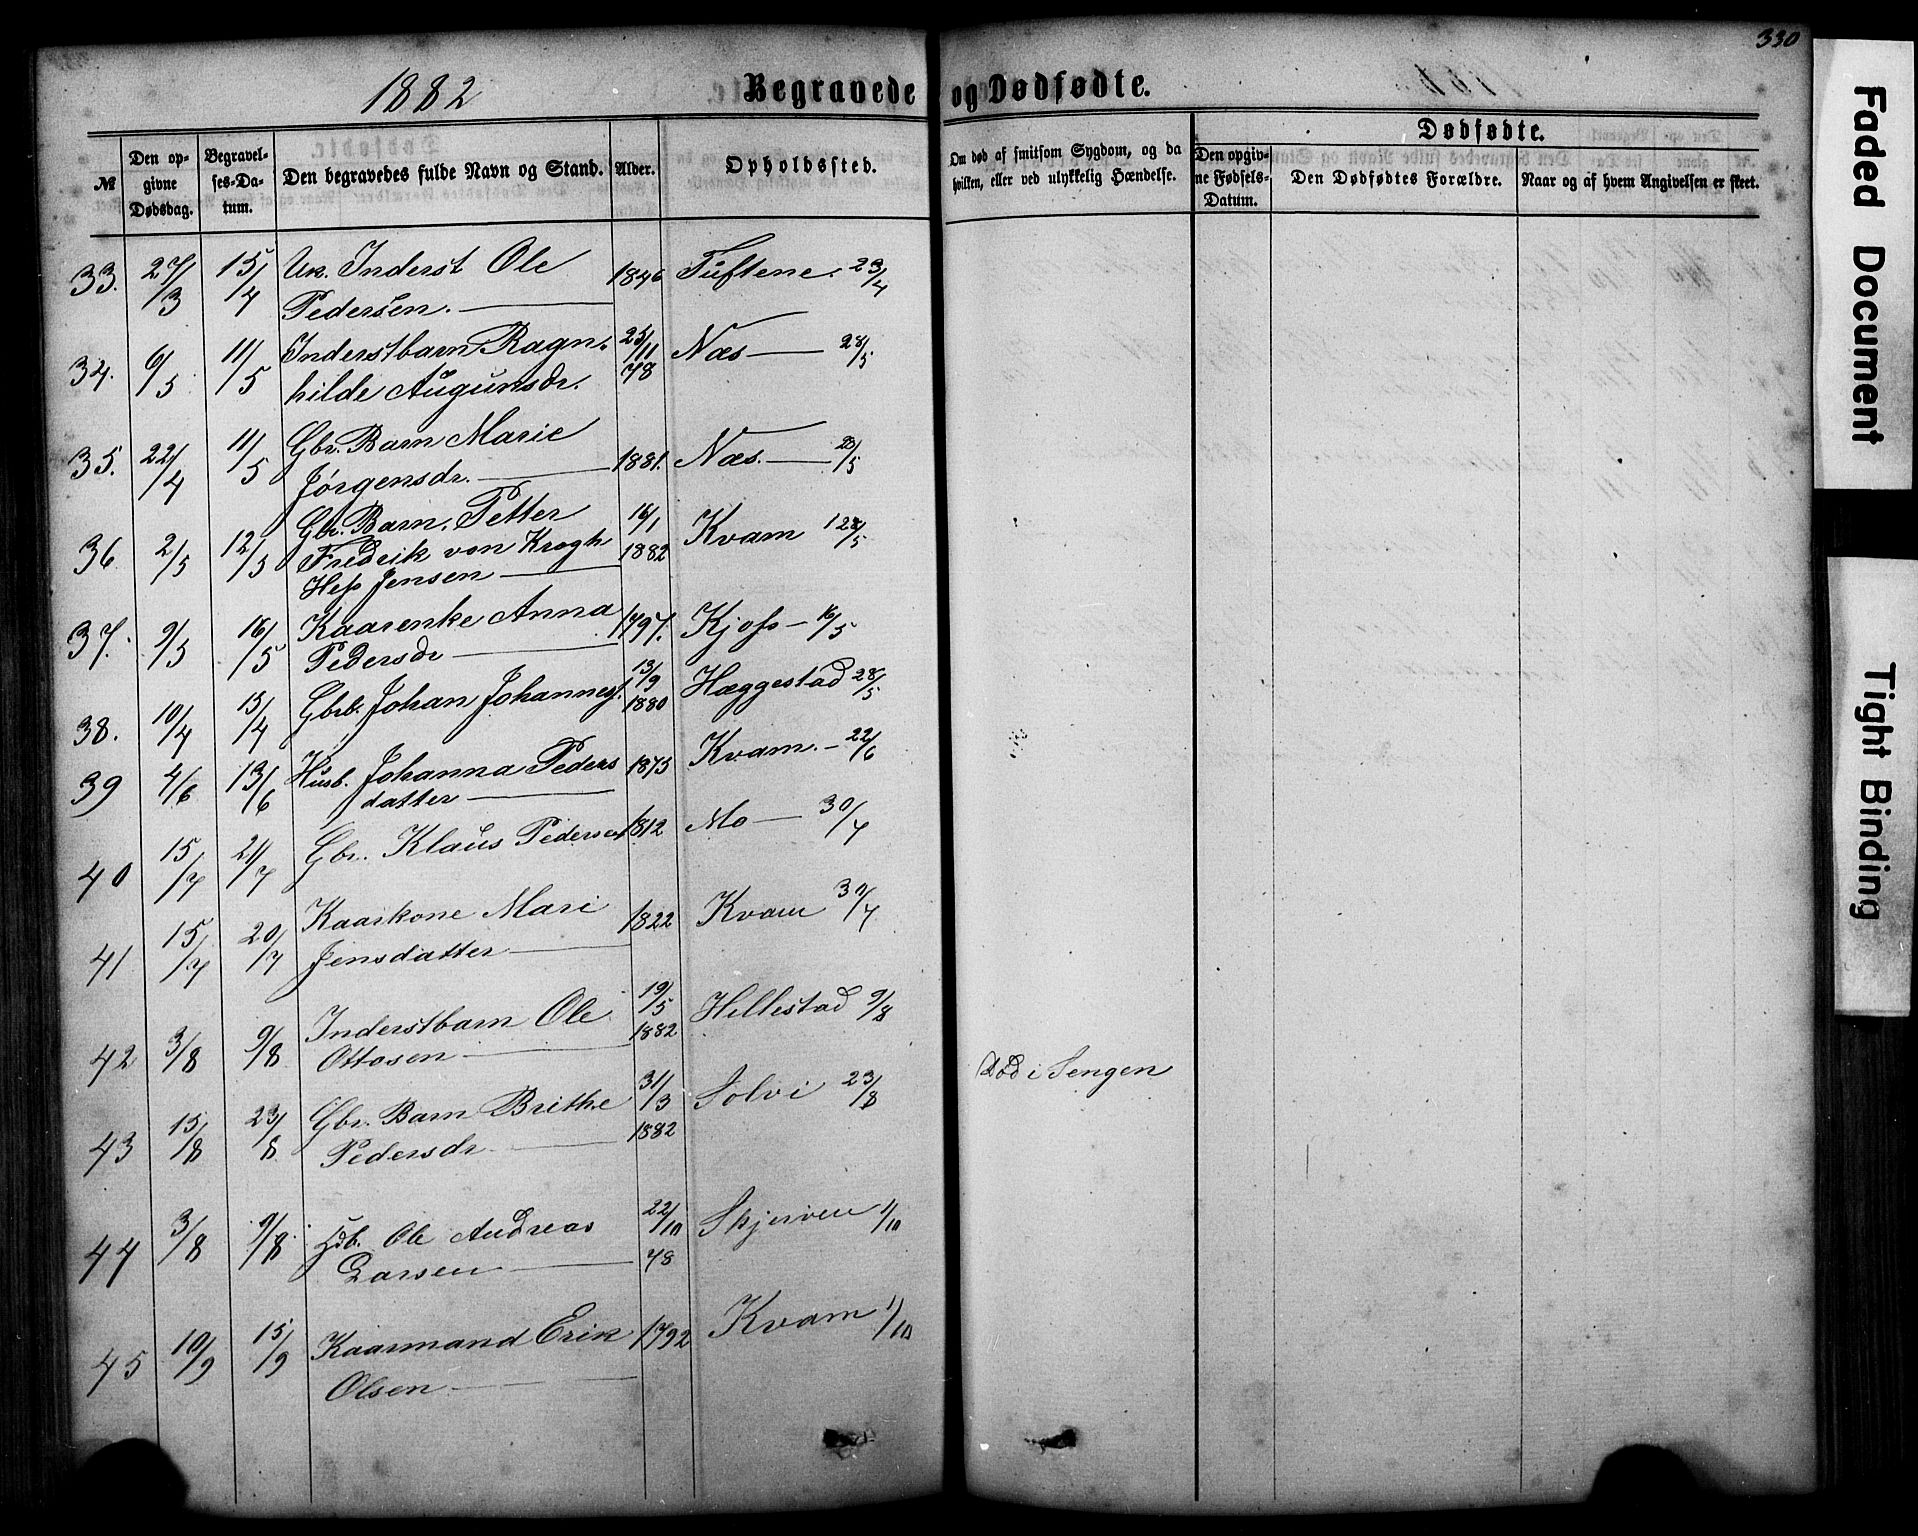 330
1882 Begravede og Dødfødte.
Dødfødte.
№ Den op- givne Dødsdag. Begravel- ses-Da- tum. Den begravedes fulde Navn og Stand. Alder. Opholdssted. Om død af smitsom Sygdom, og da hvilken, eller ved ulykkelig Hændelse. Den opgiv- ne Fødsels- Datum. Den Dødfødtes Forældre. Naar og af hvem Angivelsen er skeet.
33. 27/3 15/4 Un. Inderst Ole 1846 Tuftene. 23/4
Pedersen.
34. 6/5 11/5 Inderstbarn Ragn- 25/11 78 Næs 28/5
hilde Augunsdr.
35. 22/4 11/5 Gbr. Barn Marie 1881. Næs. 28/5
Jørgensdr.
36 2/5 12/5 Gbr. Barn, Petter 16/1 1882 Kvam 28/5
Fredrik von Krogh
Hess Jensen
37. 9/5 16/5 Kaarenke Anna 1797. Kjoss 16/5
Pedersdr
38. 10/4 15/4 Gbrb. Johan Johannes. 13/9 1880 Hæggestad 28/5
39 4/6 13/6 Husb. Johanna Peders 1875 Kvam. 22/6
datter
40 15/7 21/7 Gbr. Klaus Pedersen 1812 Mo 30/7
41 15/7 20/7 Kaarkone Mari 1822 Kvam 30/7
Jensdatter
42 3/8 9/8 Inderstbarn Ole 19/5 1882 Hillestad 9/8
Ottosen
Død i Sengen
43 15/8 23/8 Gbr. Barn Brithe 31/3 1882 Solvi 23/8
Pedersdr.
44 3/8 9/8 Ole Andreas 22/10 78 Skjerven 1/10
Larsen
45 10/9 15/9 Kaarmand Erik 1792 Kvam 1/10
Olsen
Faded Document
Tight Binding